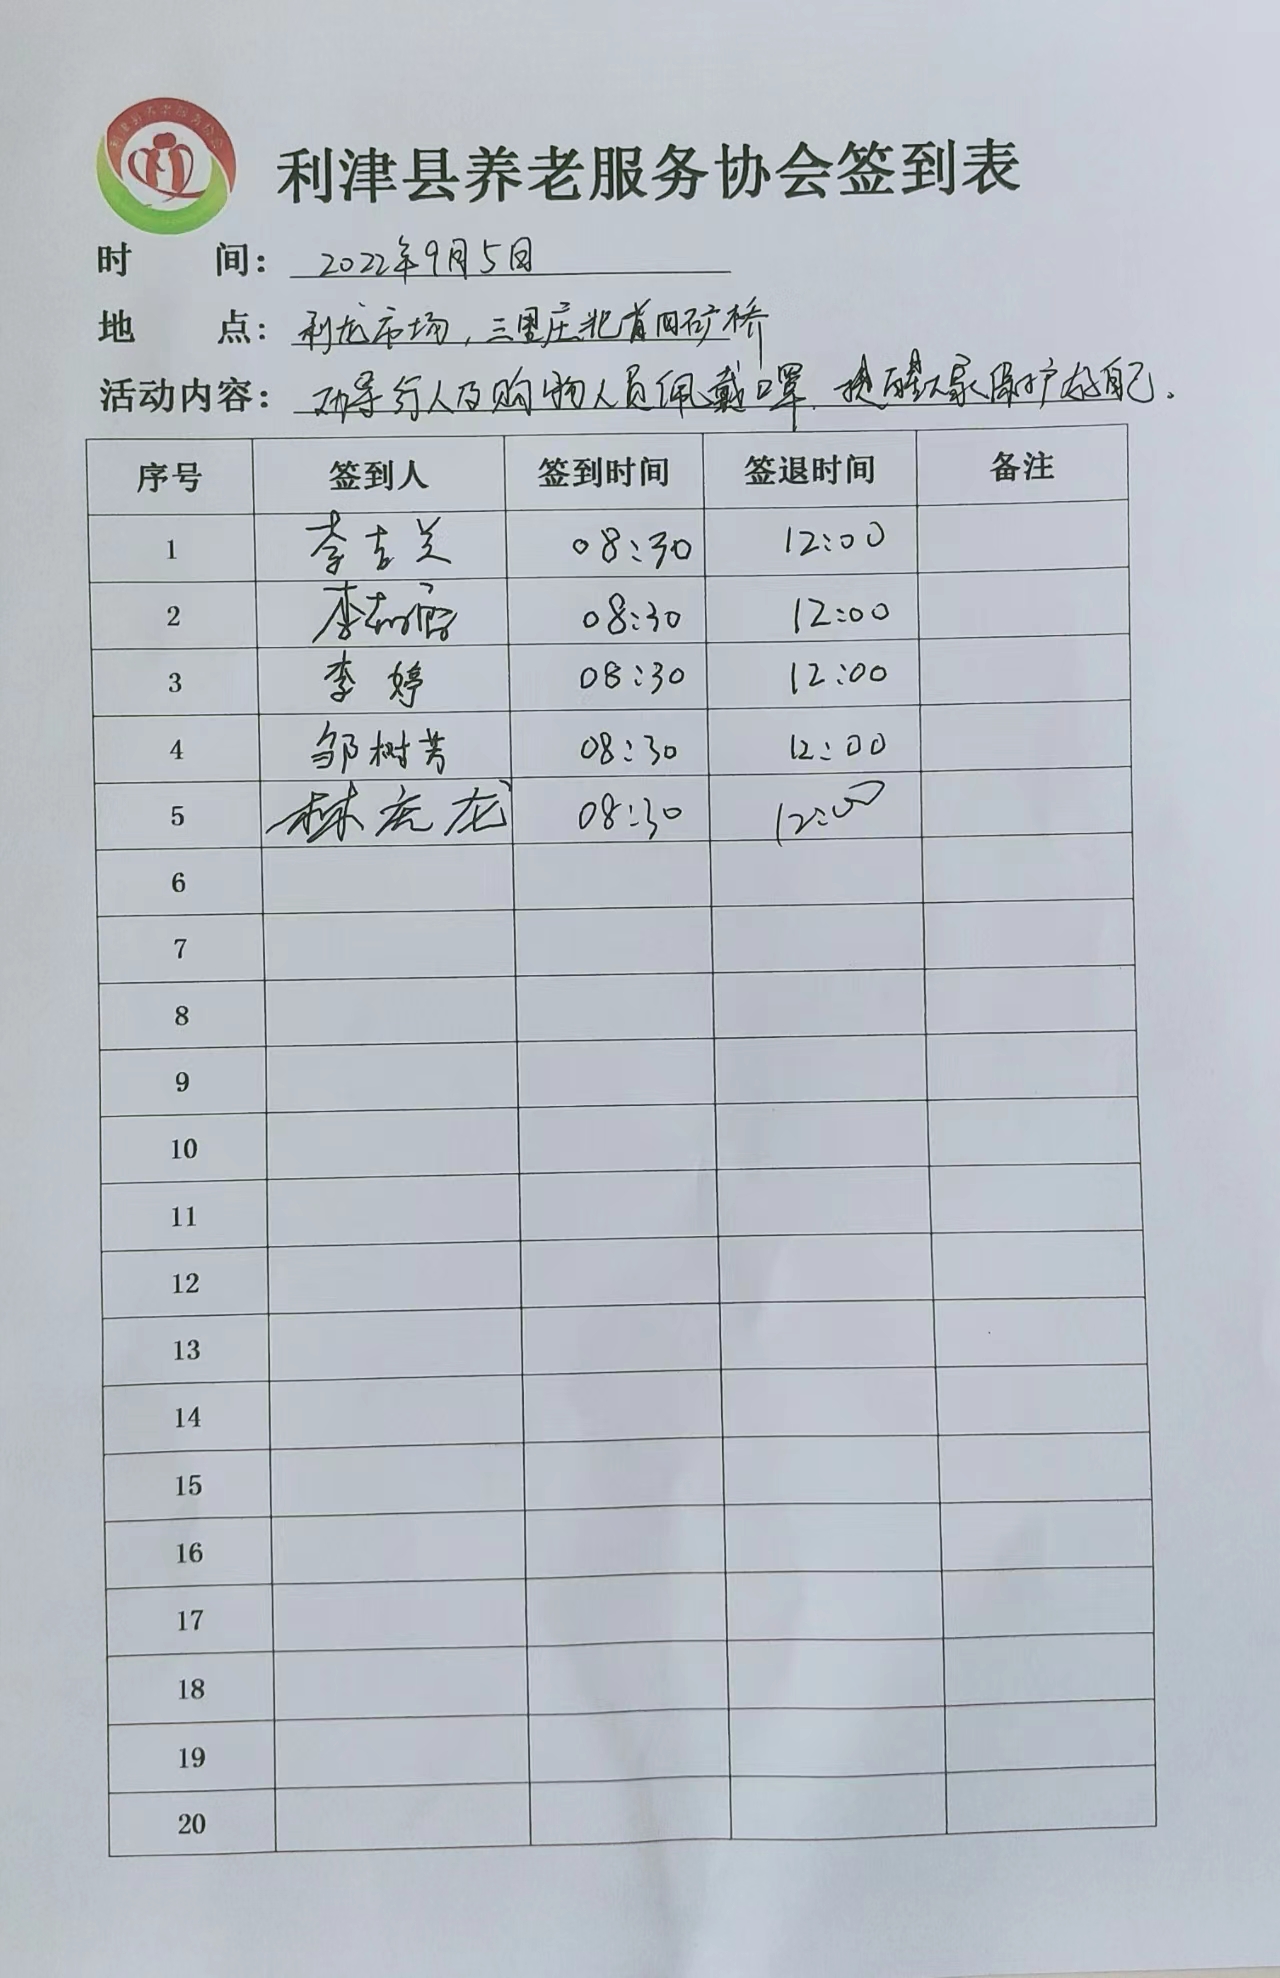 利津县养老服务协会签到表
时 间： 2022年9月5日
地 点： 利龙市场，三里庄北首回矿桥
活动内容： 劝导行人及购物人员佩戴口罩，提醒大家保护好自己．
序号 签到人 签到时间 签退时间 备注
1 李吉 08:30 12:00
2 李 08:30 12:00
3 李婷 08:30 12:00
4 邹树芳 08:30 12:00
5 林虎龙 08:30 12:00
6
7
8
9
10
11
12
13
14
15
16
17
18
19
20